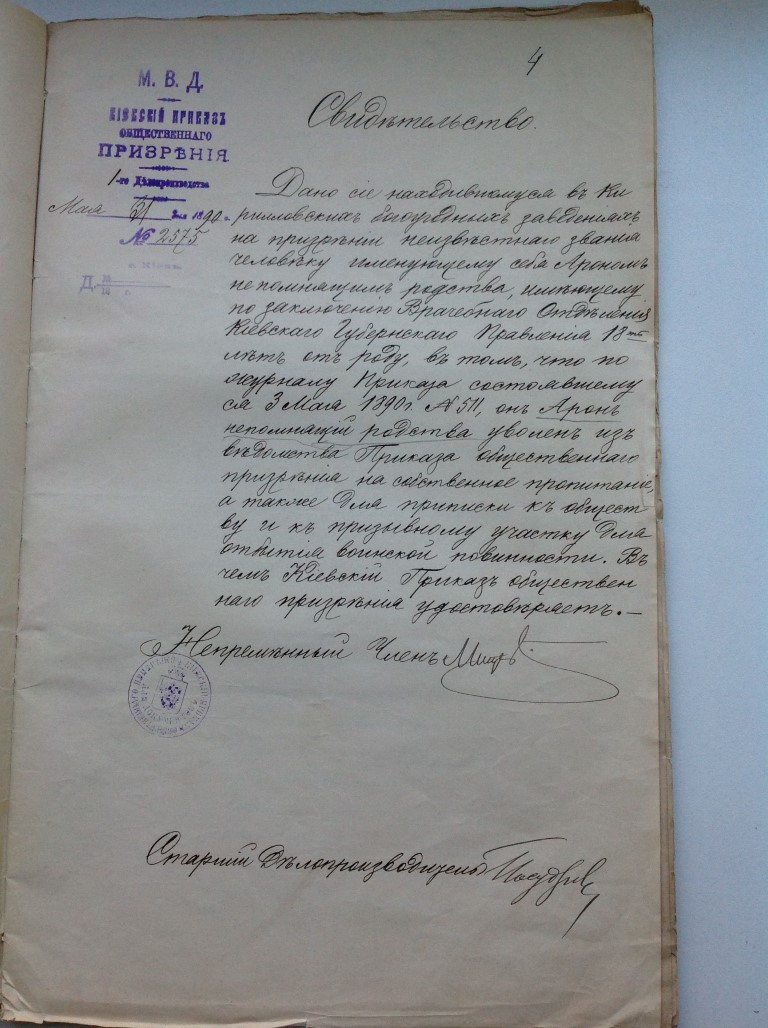 4
М. В. Д.
КІЕВСКІЙ ПРИКАЗЪ
ОБЩЕСТВЕННАГО
ПРИЗРѢНІЯ
1-го Дѣлопроизводства
Мая 21 дня 1890 г.
№ 2575
Свидѣтельство.
Дано сіе находившемуся въ Ки
рилловскихъ богоугодныхъ заведеніяхъ
на призрѣніи неизвѣстнаго званія
человѣку именующему себя Арономъ
непомнящимъ родства, имѣющему
по заключенію Врачебнаго Отдѣленія
Кіевскаго Губернскаго Правленія 18ть
лѣтъ отъ роду, въ томъ, что по
журналу Приказа состоявшему
ся 3 Мая 1890 г. № 511, онъ Аронъ
непомнящій родства уволенъ изъ
вѣдомства Приказа общественнаго
призрѣнія на собственное пропитаніе,
а также для приписки къ общест
ву и къ призывному участку для
отбытія воинской повинности. Въ
чемъ Кіевскій Приказъ обществен
наго призрѣнія удостовѣряетъ. —
Непремѣнный Членъ
Старшій Дѣлопроизводитель